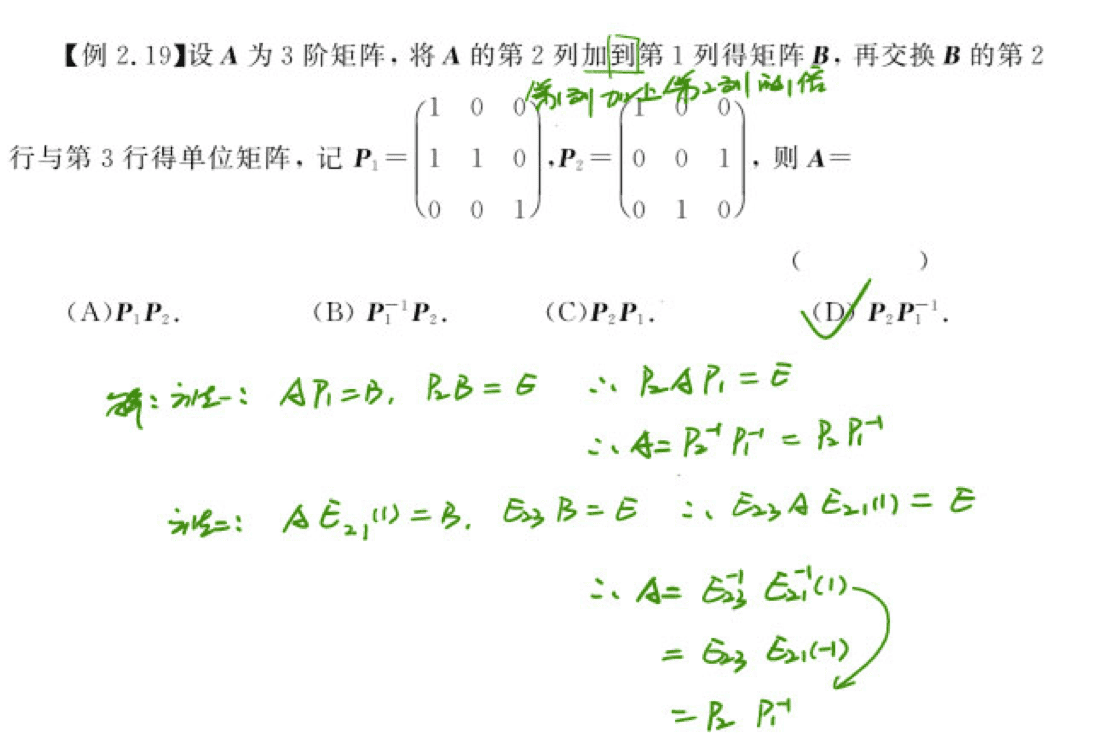 【例 2.19】设 A 为 3 阶矩阵，将 A 的第 2 列加到第 1 列得矩阵 B，再交换 B 的第 2
第1列加上第2列的1倍
行与第 3 行得单位矩阵，记 P₁=(1 0 0; 1 1 0; 0 0 1), P₂=(1 0 0; 0 0 1; 0 1 0)，则 A=
( )
(A)P₁P₂. (B) P₁⁻¹P₂. (C)P₂P₁. (D) P₂P₁⁻¹.
解：方法一： AP₁=B, P₂B=E ∴ P₂AP₁=E
∴ A=P₂⁻¹P₁⁻¹=P₂P₁⁻¹
方法二： AE₂₁(1)=B, E₂₃B=E ∴ E₂₃AE₂₁(1)=E
∴ A=E₂₃⁻¹ E₂₁⁻¹(1)
=E₂₃ E₂₁(-1)
=P₂ P₁⁻¹